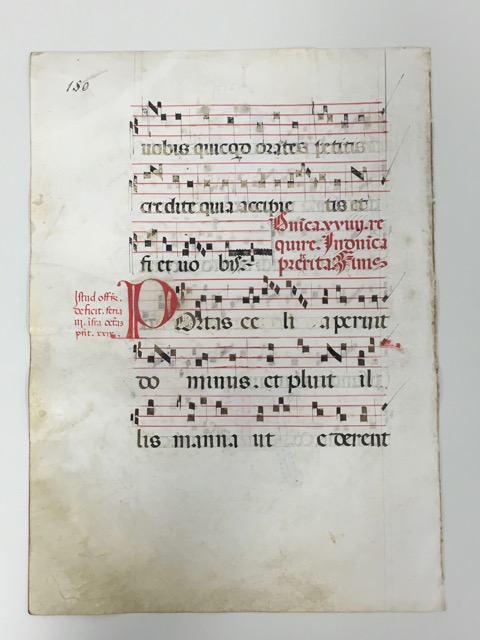 150
uobis quicqd orātes petitis
credite quia accipie tis et
fi et uo bis.
Dnica.xxiiij.re
quire. In dnica
p̄terita
Istud offic̄.
deficit. feria
iii. ista
PORtas ce li aperuit
do minus. et pluit il
lis manna ut ederent